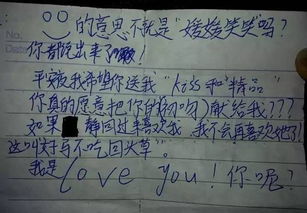 的意思不就是"嫒嫒笑笑"吗?
你都说出来了!
平安夜我希望你送我"kiss和精品"
你真的愿意把你的初吻献给我???
如果 静回过来喜欢我,我不会再喜欢她了!
这叫好马不吃回火草"。
我是love you!你呢?